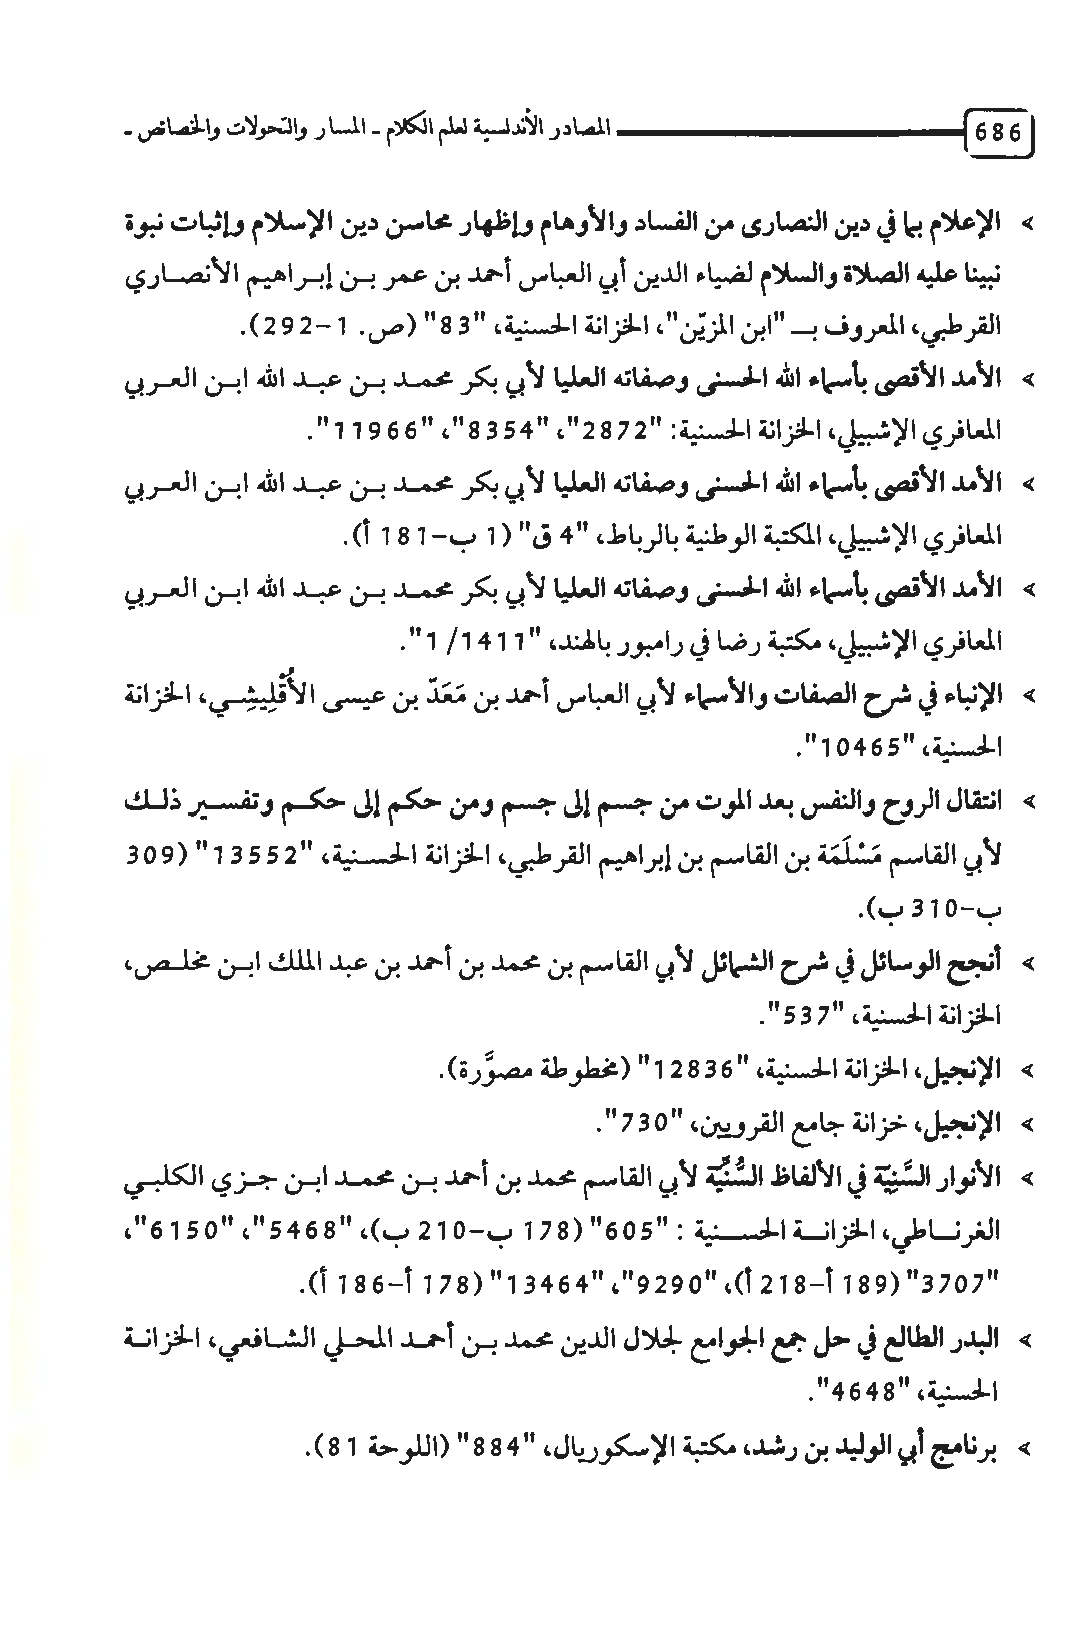 686 المصادر الأندلسية لعلم الكلام - المسار والتحولات والخصائص -
> الإعلام بما في دين النصارى من الفساد والأوهام وإظهار محاسن دين الإسلام وإثبات نبوة
نبينا عليه الصلاة والسلام لضياء الدين أبي العباس أحمد بن عمر بن إبراهيم الأنصاري
القرطبي، المعروف بـ "ابن المزيّن"، الخزانة الحسنية، "83" (ص. 1-292).
> الأمد الأقصى بأسماء الله الحسنى وصفاته العليا لأبي بكر محمد بن عبد الله ابن العربي
المعافري الإشبيلي، الخزانة الحسنية: "2872"، "8354"، "11966".
> الأمد الأقصى بأسماء الله الحسنى وصفاته العليا لأبي بكر محمد بن عبد الله ابن العربي
المعافري الإشبيلي، المكتبة الوطنية بالرباط، "4 ق" (1 ب-181 أ).
> الأمد الأقصى بأسماء الله الحسنى وصفاته العليا لأبي بكر محمد بن عبد الله ابن العربي
المعافري الإشبيلي، مكتبة رضا في رامبور بالهند، "1411/ 1".
> الإنباء في شرح الصفات والأسماء لأبي العباس أحمد بن مَعَدّ بن عيسى الأُقْلِيشِي، الخزانة
الحسنية، "10465".
> انتقال الروح والنفس بعد الموت من جسم إلى جسم ومن حكم إلى حكم وتفسير ذلك
لأبي القاسم مَسْلَمَة بن القاسم بن إبراهيم القرطبي، الخزانة الحسنية، "13552" (309
ب-310 ب).
> أنجح الوسائل في شرح الشمائل لأبي القاسم بن محمد بن أحمد بن عبد الملك ابن مخلص،
الخزانة الحسنية، "537".
> الإنجيل، الخزانة الحسنية، "12836" (مخطوطة مصوَّرة).
> الإنجيل، خزانة جامع القرويين، "730".
> الأنوار السَّنِيَّة في الألفاظ السُّنِّيَّة لأبي القاسم محمد بن أحمد بن محمد ابن جزي الكلبي
الغرناطي، الخزانة الحسنية : "605" (178 ب-210 ب)، "5468"، "6150"،
"3707" (189 أ-218 أ)، "9290"، "13464" (178 أ-186 أ).
> البدر الطالع في حل جمع الجوامع لجلال الدين محمد بن أحمد المحلي الشافعي، الخزانة
الحسنية، "4648".
> برنامج أبي الوليد بن رشد، مكتبة الإسكوريال، "884" (اللوحة 81).